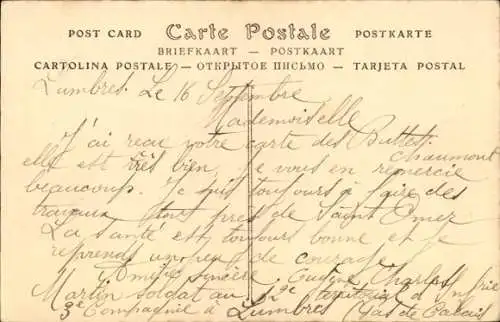 POST CARD Carte Postale POSTKARTE
BRIEFKAART — POSTKAART
CARTOLINA POSTALE — ОТКРЫТОЕ ПИСЬМО — TARJETA POSTAL
Lumbres. Le 16 Septembre
Mademoiselle
J'ai recu votre carte des Buttes
Chaumont
elle est très bien Je vous en remercie
beaucoup. Je suis toujours à faire des
travaux tout pres de Saint Omer
La santé est toujours bonne et je
reprends un peu de courage
Amitié sincère Charles
Martin soldat au 12e territorial d'Infrie
3e Compagnie à Lumbres (Pas de Calais